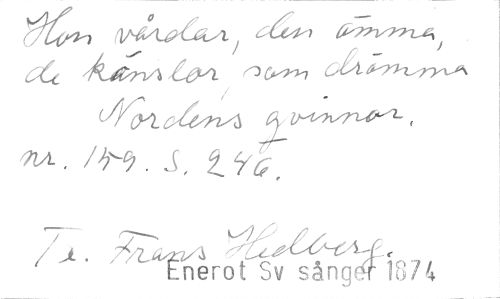 Hon vårdar, den ömma,
de känslor, som drömma
Nordens qvinnor.
nr. 159. S. 246.
Te. Frans Hedberg.
Enerot Sv sånger 1874